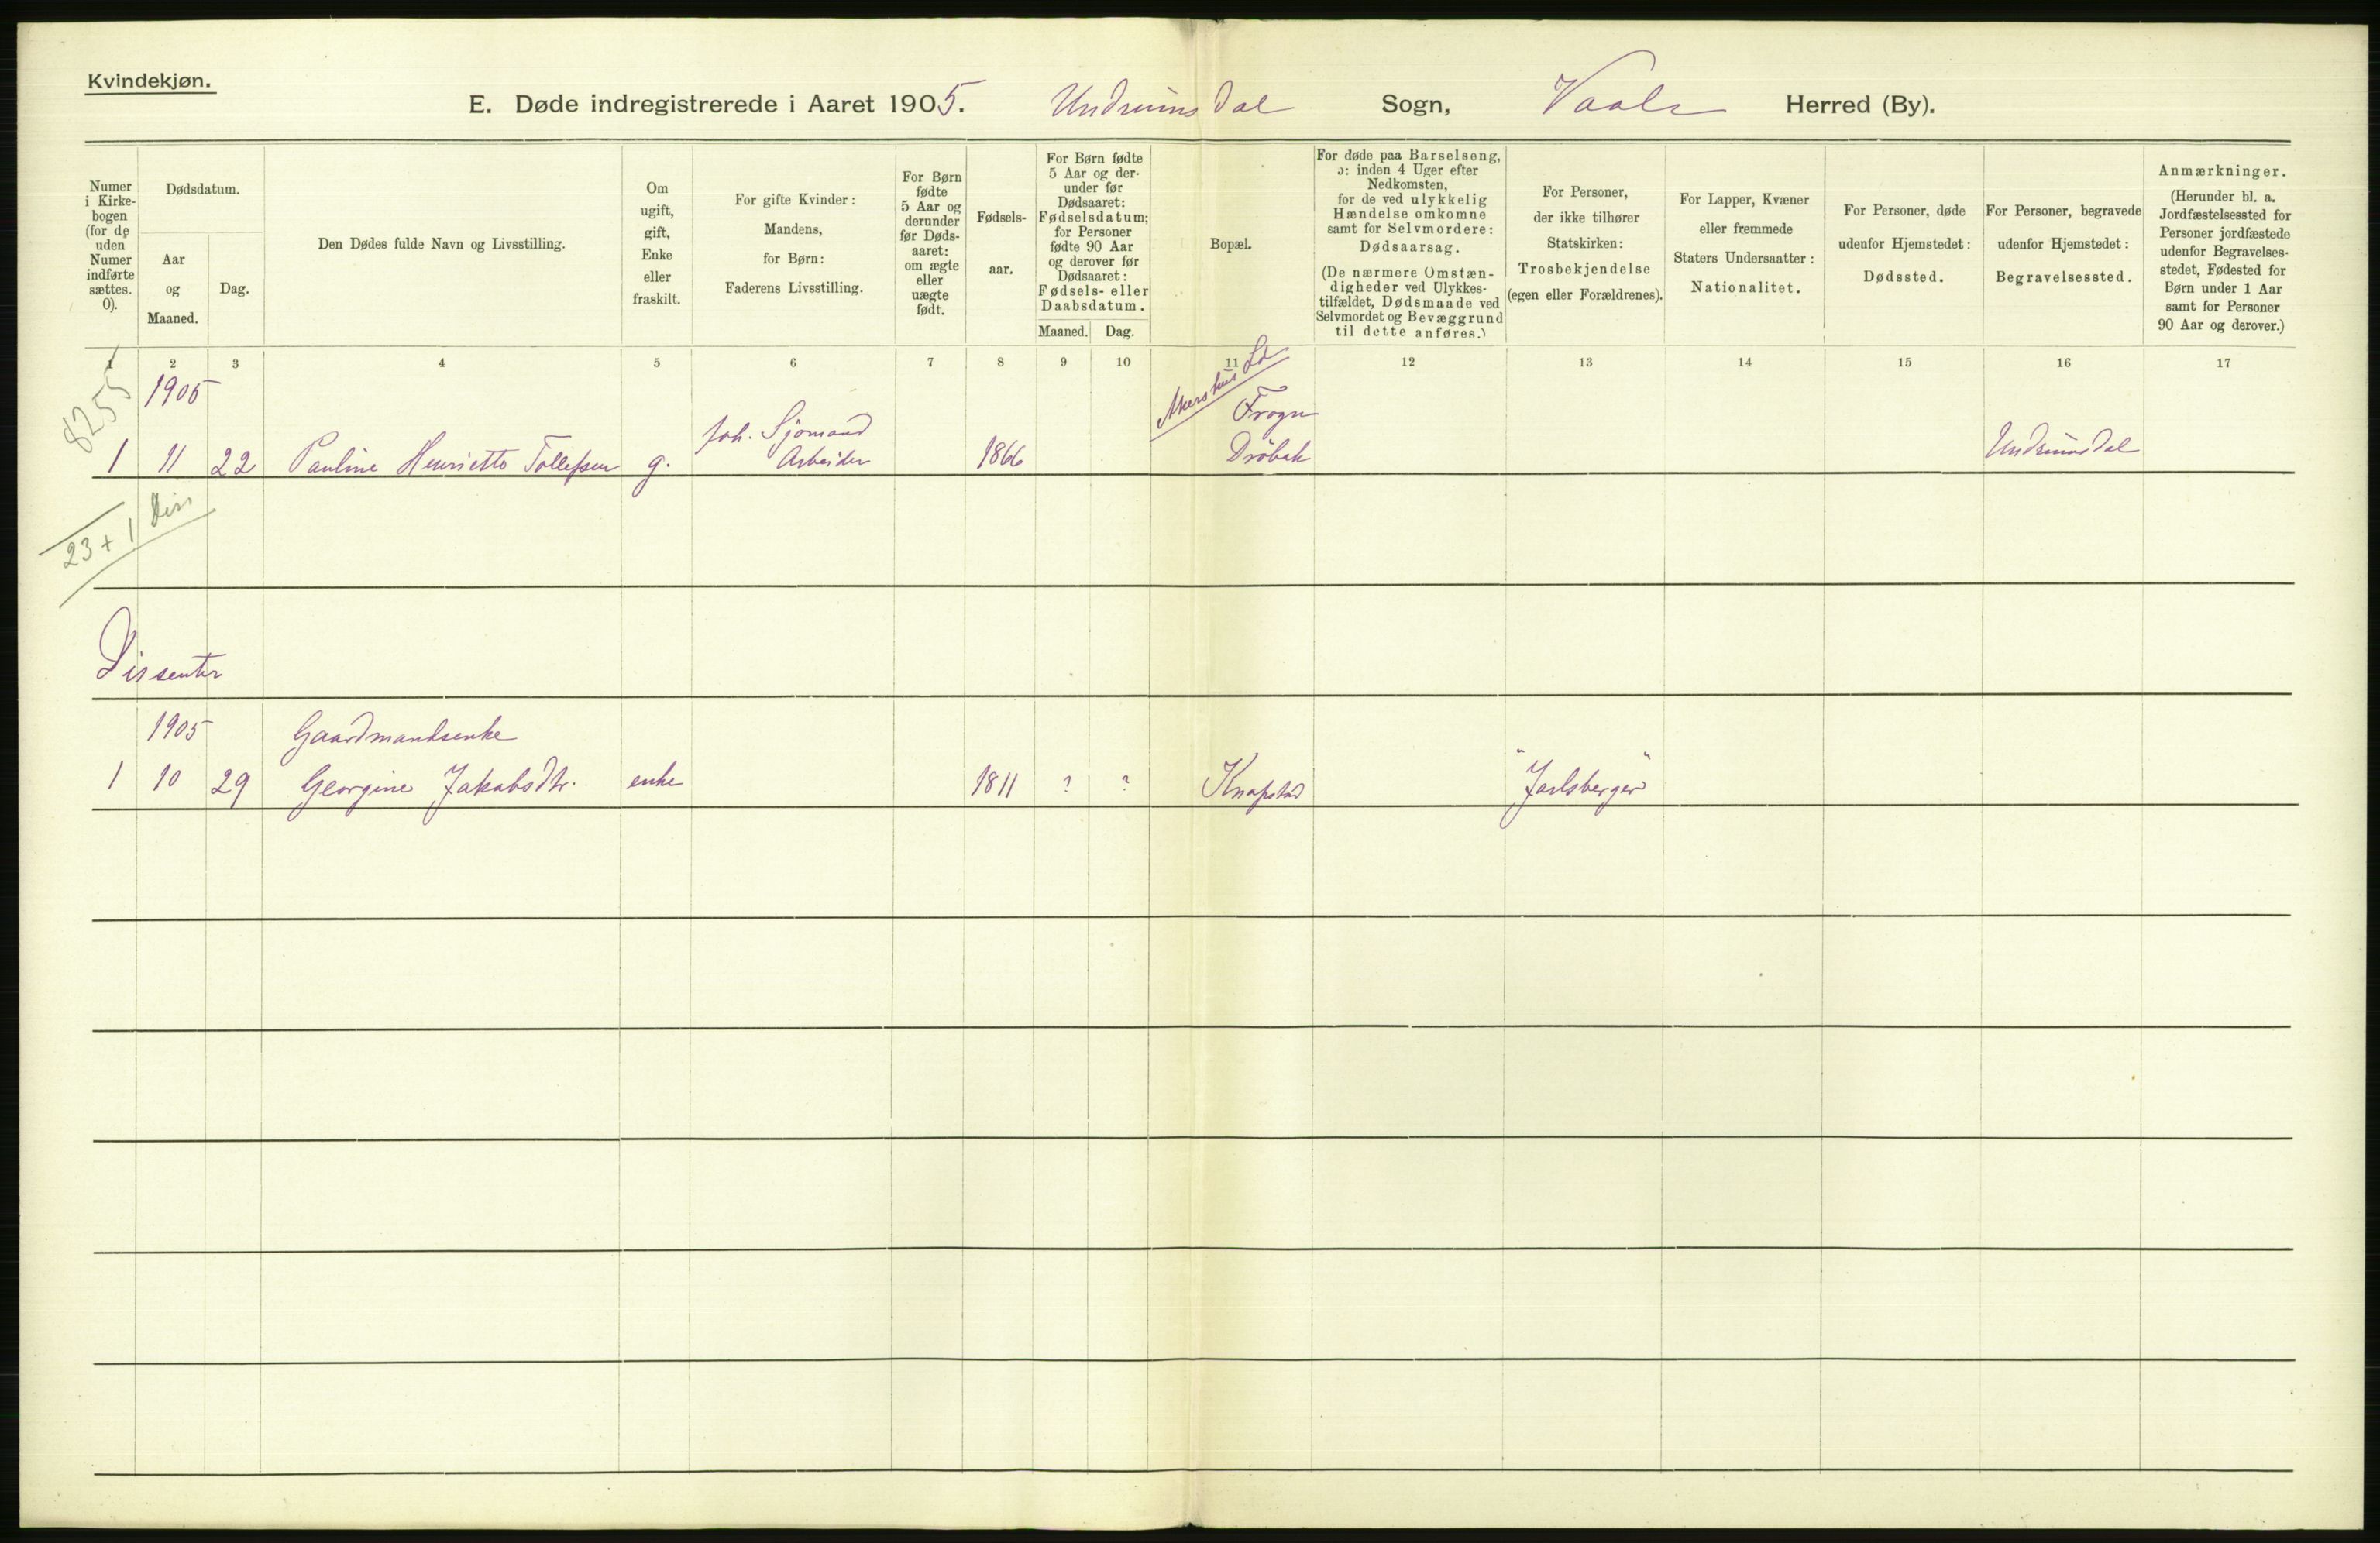 Kvindekjøn.
E. Døde indregistrerede i Aaret 1905. Undrumsdal Sogn, Vaale Herred (By).
Numer i Kirkebogen (for de uden Numer indførte sættes. 0).
Dødsdatum.
Aar og Maaned.
Dag.
Den Dødes fulde Navn og Livsstilling.
Om ugift, gift, Enke eller fraskilt.
For gifte Kvinder: Mandens, for Børn: Faderens Livsstilling.
For Børn fødte 5 Aar og derunder før Dødsaaret: om ægte eller uægte født.
Fødselsaar.
For Børn fødte 5 Aar og derunder før Dødsaaret: Fødselsdatum; for Personer fødte 90 Aar og derover før Dødsaaret: Fødsels- eller Daabsdatum.
Maaned. Dag.
Bopæl.
For døde paa Barselseng, ɔ: inden 4 Uger efter Nedkomsten, for de ved ulykkelig Hændelse omkomne samt for Selvmordere: Dødsaarsag.
(De nærmere Omstændigheder ved Ulykkestilfældet, Dødsmaade ved Selvmordet og Bevæggrund til dette anføres.)
For Personer, der ikke tilhører Statskirken: Trosbekjendelse (egen eller Forældrenes).
For Lapper, Kvæner eller fremmede Staters Undersaatter: Nationalitet.
For Personer, døde udenfor Hjemstedet: Dødssted.
For Personer, begravede udenfor Hjemstedet: Begravelsessted.
Anmærkninger.
(Herunder bl. a. Jordfæstelsessted for Personer jordfæstede udenfor Begravelsesstedet, Fødested for Børn under 1 Aar samt for Personer 90 Aar og derover.)
1 2 3 4 5 6 7 8 9 10 11 12 13 14 15 16 17
8255
1905 Akershus Frogn
fóh. Sjømand
1 11 22 Pauline Henriette Tollefsen g. Arbeider 1866 Drøbak Undrumsdal
23 + 1 Diss
Dissenter
1905 Gaardmandsenke
1 10 29 Georgine Jakobsdtr. enke 1811 ? ? Knapstad "Jarlsberger"